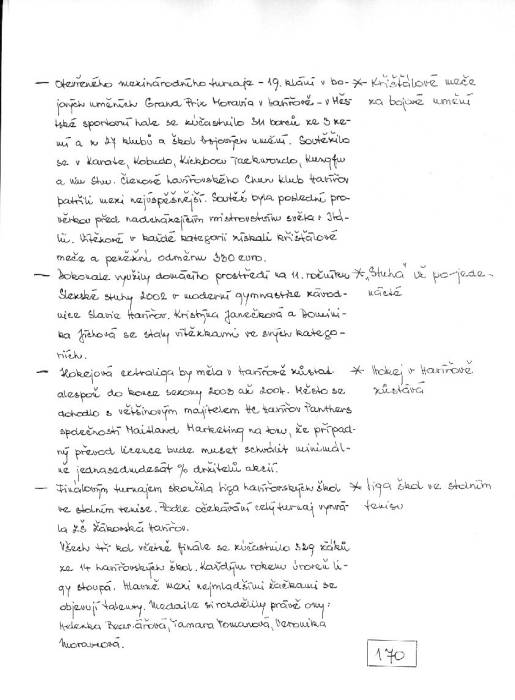 — Otevřeného mezinárodního turnaje - 19. klání v bo- * Křišťálové meče
jových uměních Grand Prix Moravia v Havířově - v Měs- na bojové umění
tské sportovní hale se zúčastnilo 311 borců ze 3 ze-
mí a z 27 klubů a škol bojových umění. Soutěžilo
se v Karate, Kobudo, Kickboxu, Taekwondo, Kungfu
a Wu Shu. Členové havířovského Chun klub Havířov
patřili mezi nejúspěšnější. Soutěž byla poslední pro-
věrkou před nadcházejícím mistrovstvím světa v Itá-
lii. Vítězové v každé kategorii získali křišťálové
meče a peněžní odměnu 330 euro.
— Dokonale využily domácího prostředí na 11. ročníku * „Stuha" už po-jede-
Slezské stuhy 2002 v moderní gymnastice závod- nácté
nice Slavie Havířov. Kristýna Janečková a Domini-
ka Jíchová se staly vítězkami ve svých katego-
riích.
— Hokejová extraliga by měla v Havířově zůstat * Hokej v Havířově
alespoň do konce sezony 2003 až 2004. Město se zůstává
dohodlo s většinovým majitelem HC Havířov Panthers
společností Maitland Marketing na tom, že případ-
ný převod licence bude muset schválit minimál-
ně jednasedmdesát % držitelů akcií.
— Finálovým turnajem skončila liga havířovských škol * liga škol ve stolním
ve stolním tenise. Podle očekávání celý turnaj vyhrá- tenisu
la ZŠ Žákovská Havířov.
Všech tří kol včetně finále se zúčastnilo 329 žáků
ze 14 havířovských škol. Každým rokem úroveň li-
gy stoupá. Hlavně mezi nejmladšími žačkami se
objevují talenty. Medaile si rozdělily právě ony:
Helenka, Tamara Tomanová, Veronika
Moravcová.
170